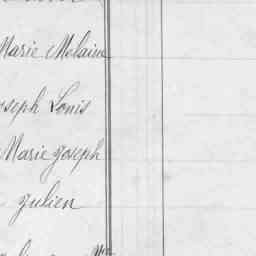 Marie Melaine
Joseph Louis
Marie Joseph
Julien